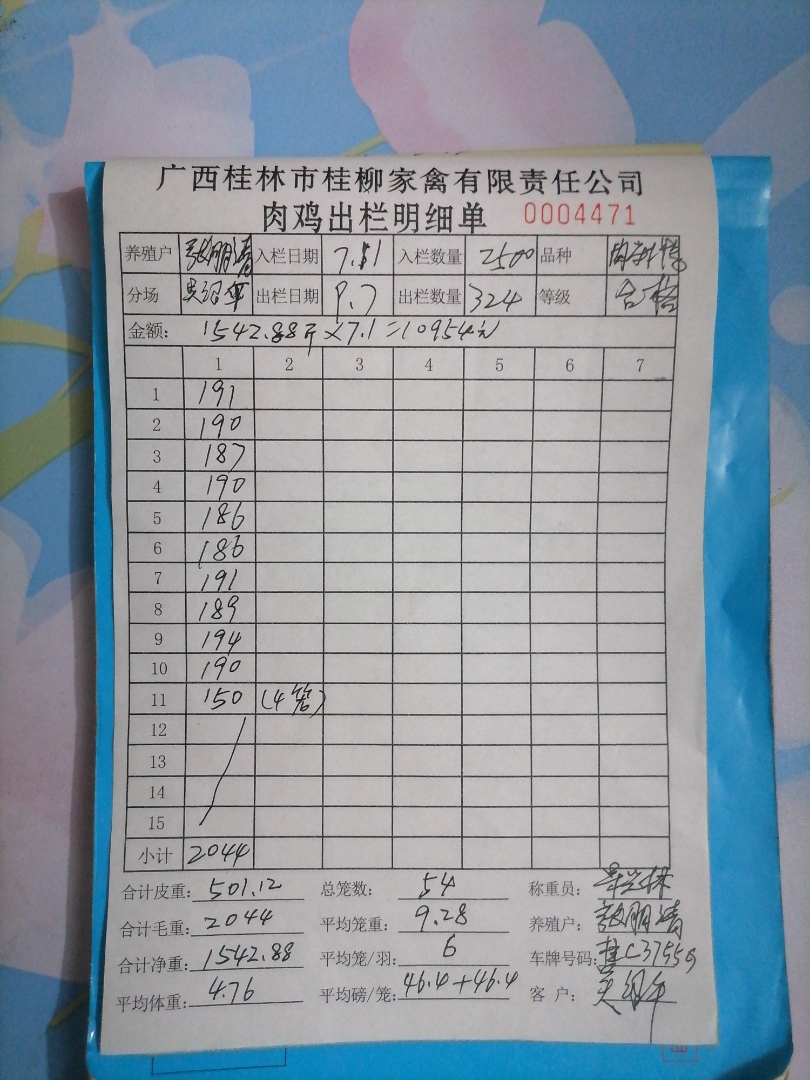 广西桂林市桂柳家禽有限责任公司
肉鸡出栏明细单 0004471
养殖户 张朋清 入栏日期 7.11 入栏数量 2500 品种
分场 出栏日期 9.7 出栏数量 324 等级 合格
金额: 1542.88斤×7.1=10954元
1 2 3 4 5 6 7
1 191
2 190
3 187
4 190
5 186
6 186
7 191
8 189
9 194
10 190
11 150 (4笼)
12
13
14
15
小计 2044
合计皮重: 501.12 总笼数: 54 称重员:
合计毛重: 2044 平均笼重: 9.28 养殖户: 张朋清
合计净重: 1542.88 平均笼/羽: 6 车牌号码: 桂C37559
平均体重: 4.76 平均磅/笼: 46.4+46.4 客 户: